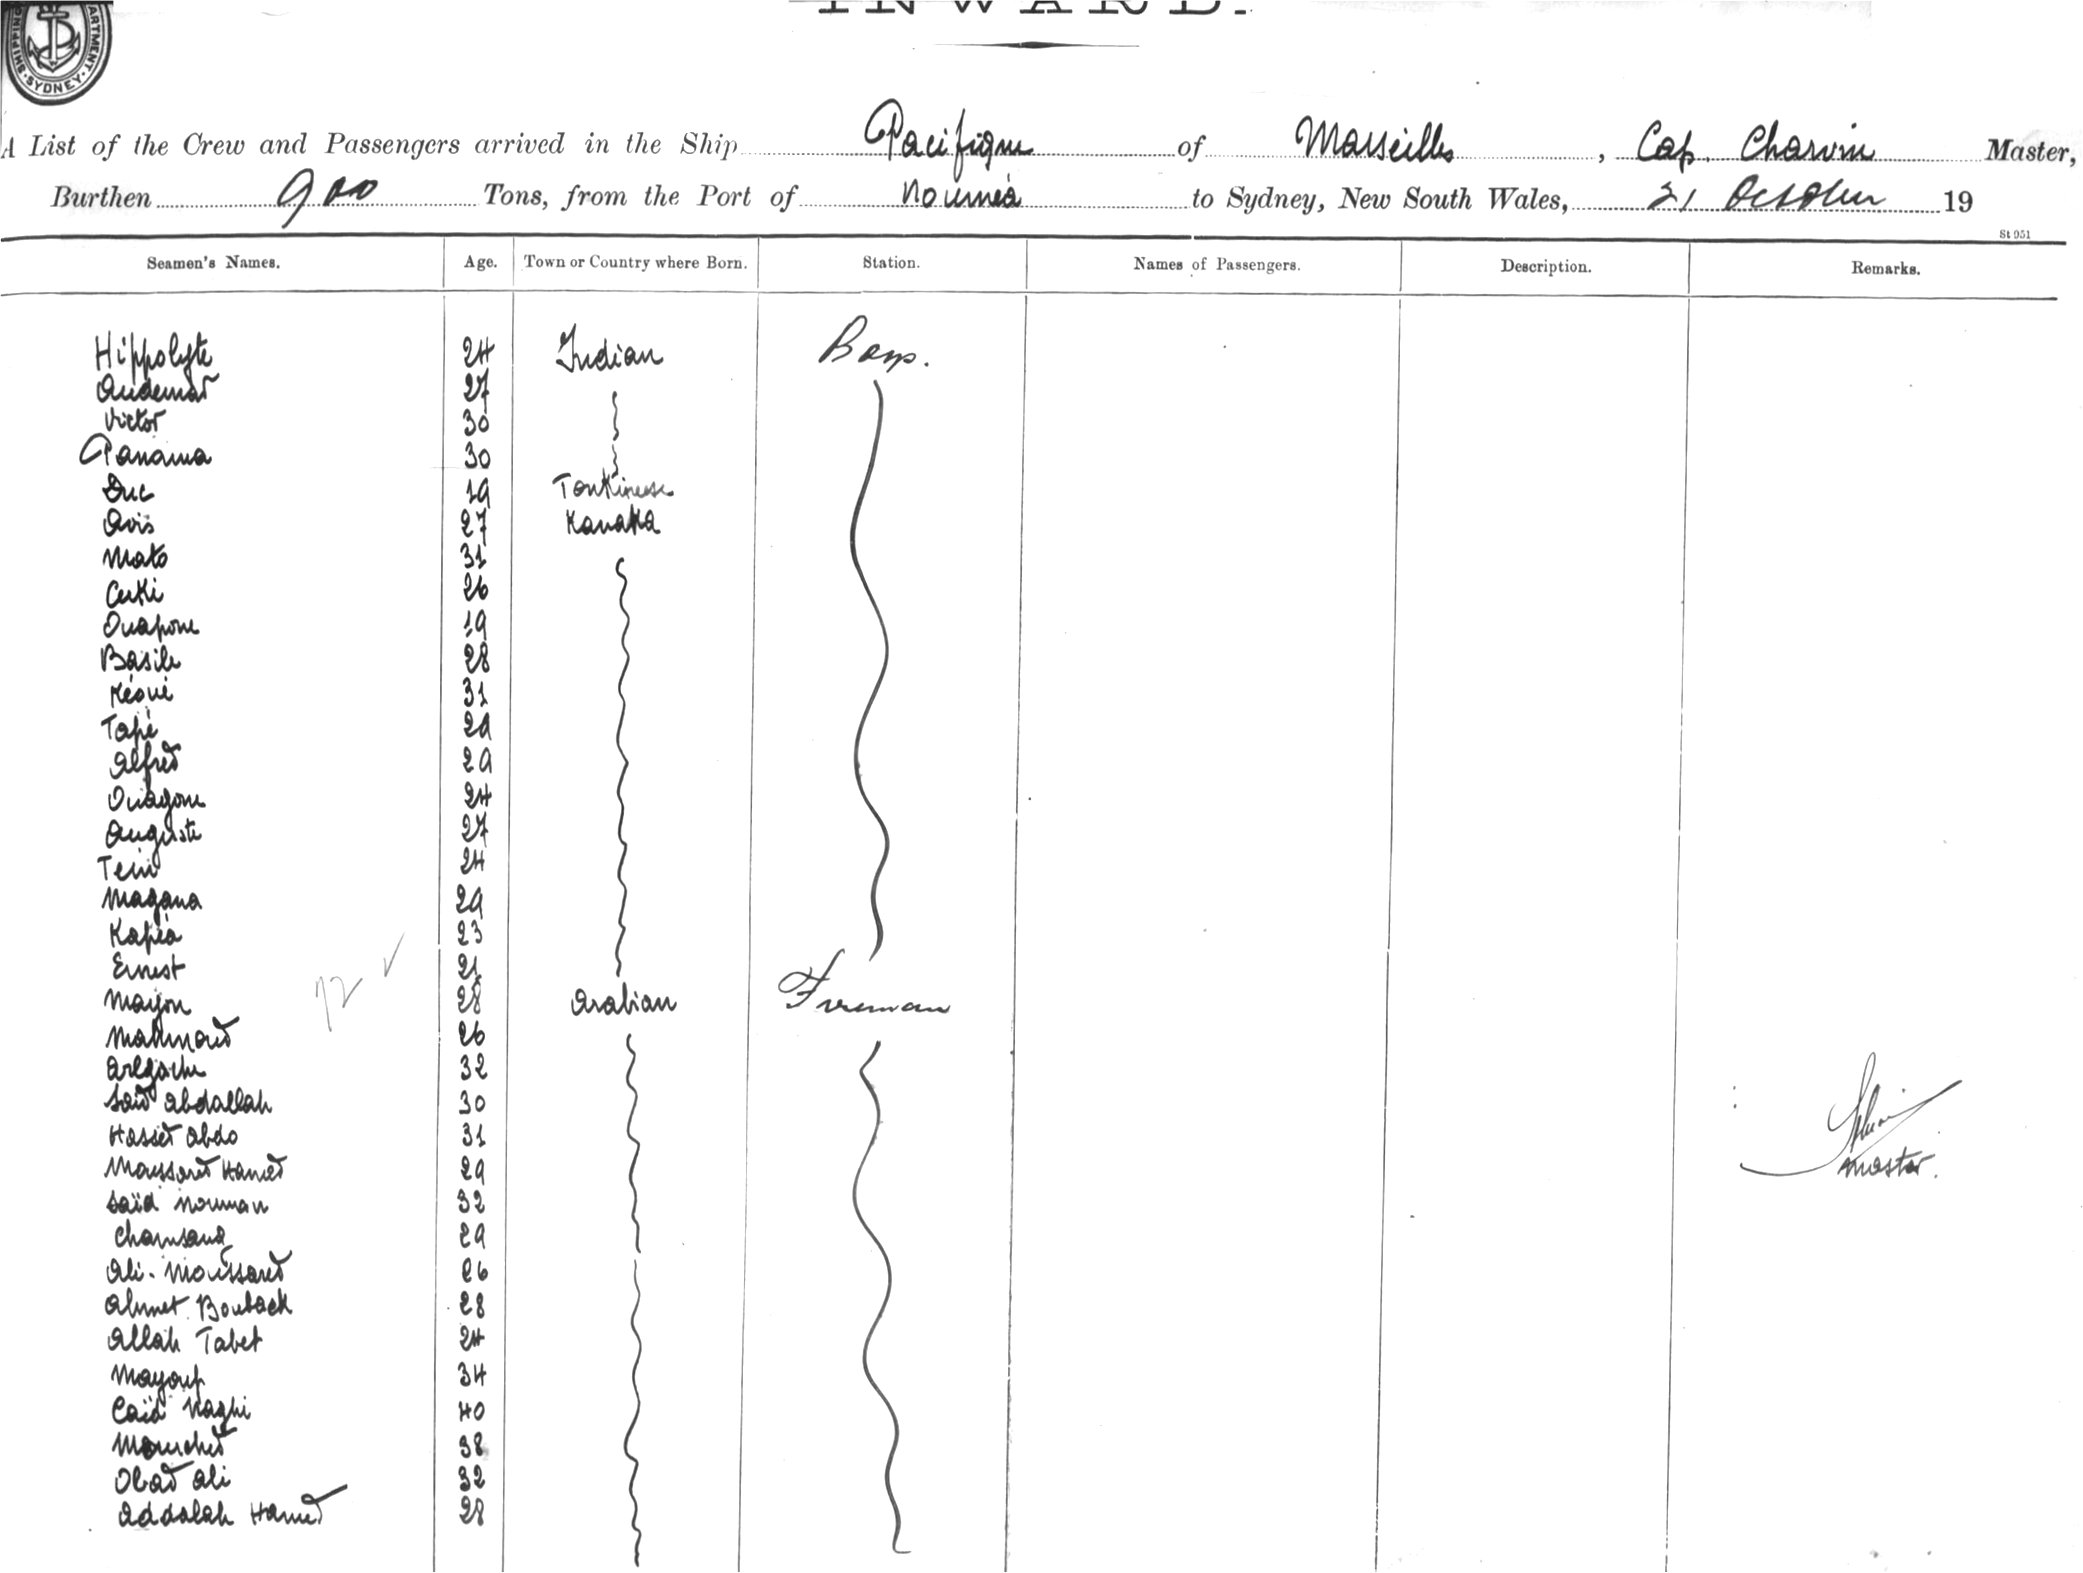 INWARD.
SHIPPING DEPARTMENT SYDNEY
A List of the Crew and Passengers arrived in the Ship Pacifique of Marseilles, Cap. Charvin Master,
Burthen 900 Tons, from the Port of Nouméa to Sydney, New South Wales, 21 October 19
St 951
Seamen's Names. Age. Town or Country where Born. Station. Names of Passengers. Description. Remarks.
Hippolyte 24 Indian Boys.
Audemar 27
Victor 30
Panama 30
Duc 19 Tonkinese
Avis 27 Kanaka
Mato 31
Cuki 26
Ouapone 19
Basile 28
Kéoué 31
Tapé 29
Alfred 29
Ouagone 24
Auguste 27
24
Magana 29
Kapéa 23
Ernest 21
Mayon 28 Arabian Fireman
72 ✓
Mahmoud 26
32
Said Abdallah 30
Hasset Abdo 31
Moussared Hamed 29
Saïd Nouman 32
Chamsana 29
Ali-Moussared 26
Ahmet Bouback 28
Allah Tabet 24
Mayouf 34
Caïd Naghi 40
Mouched 38
Obad Ali 32
Addalah Hamed 28
Master.